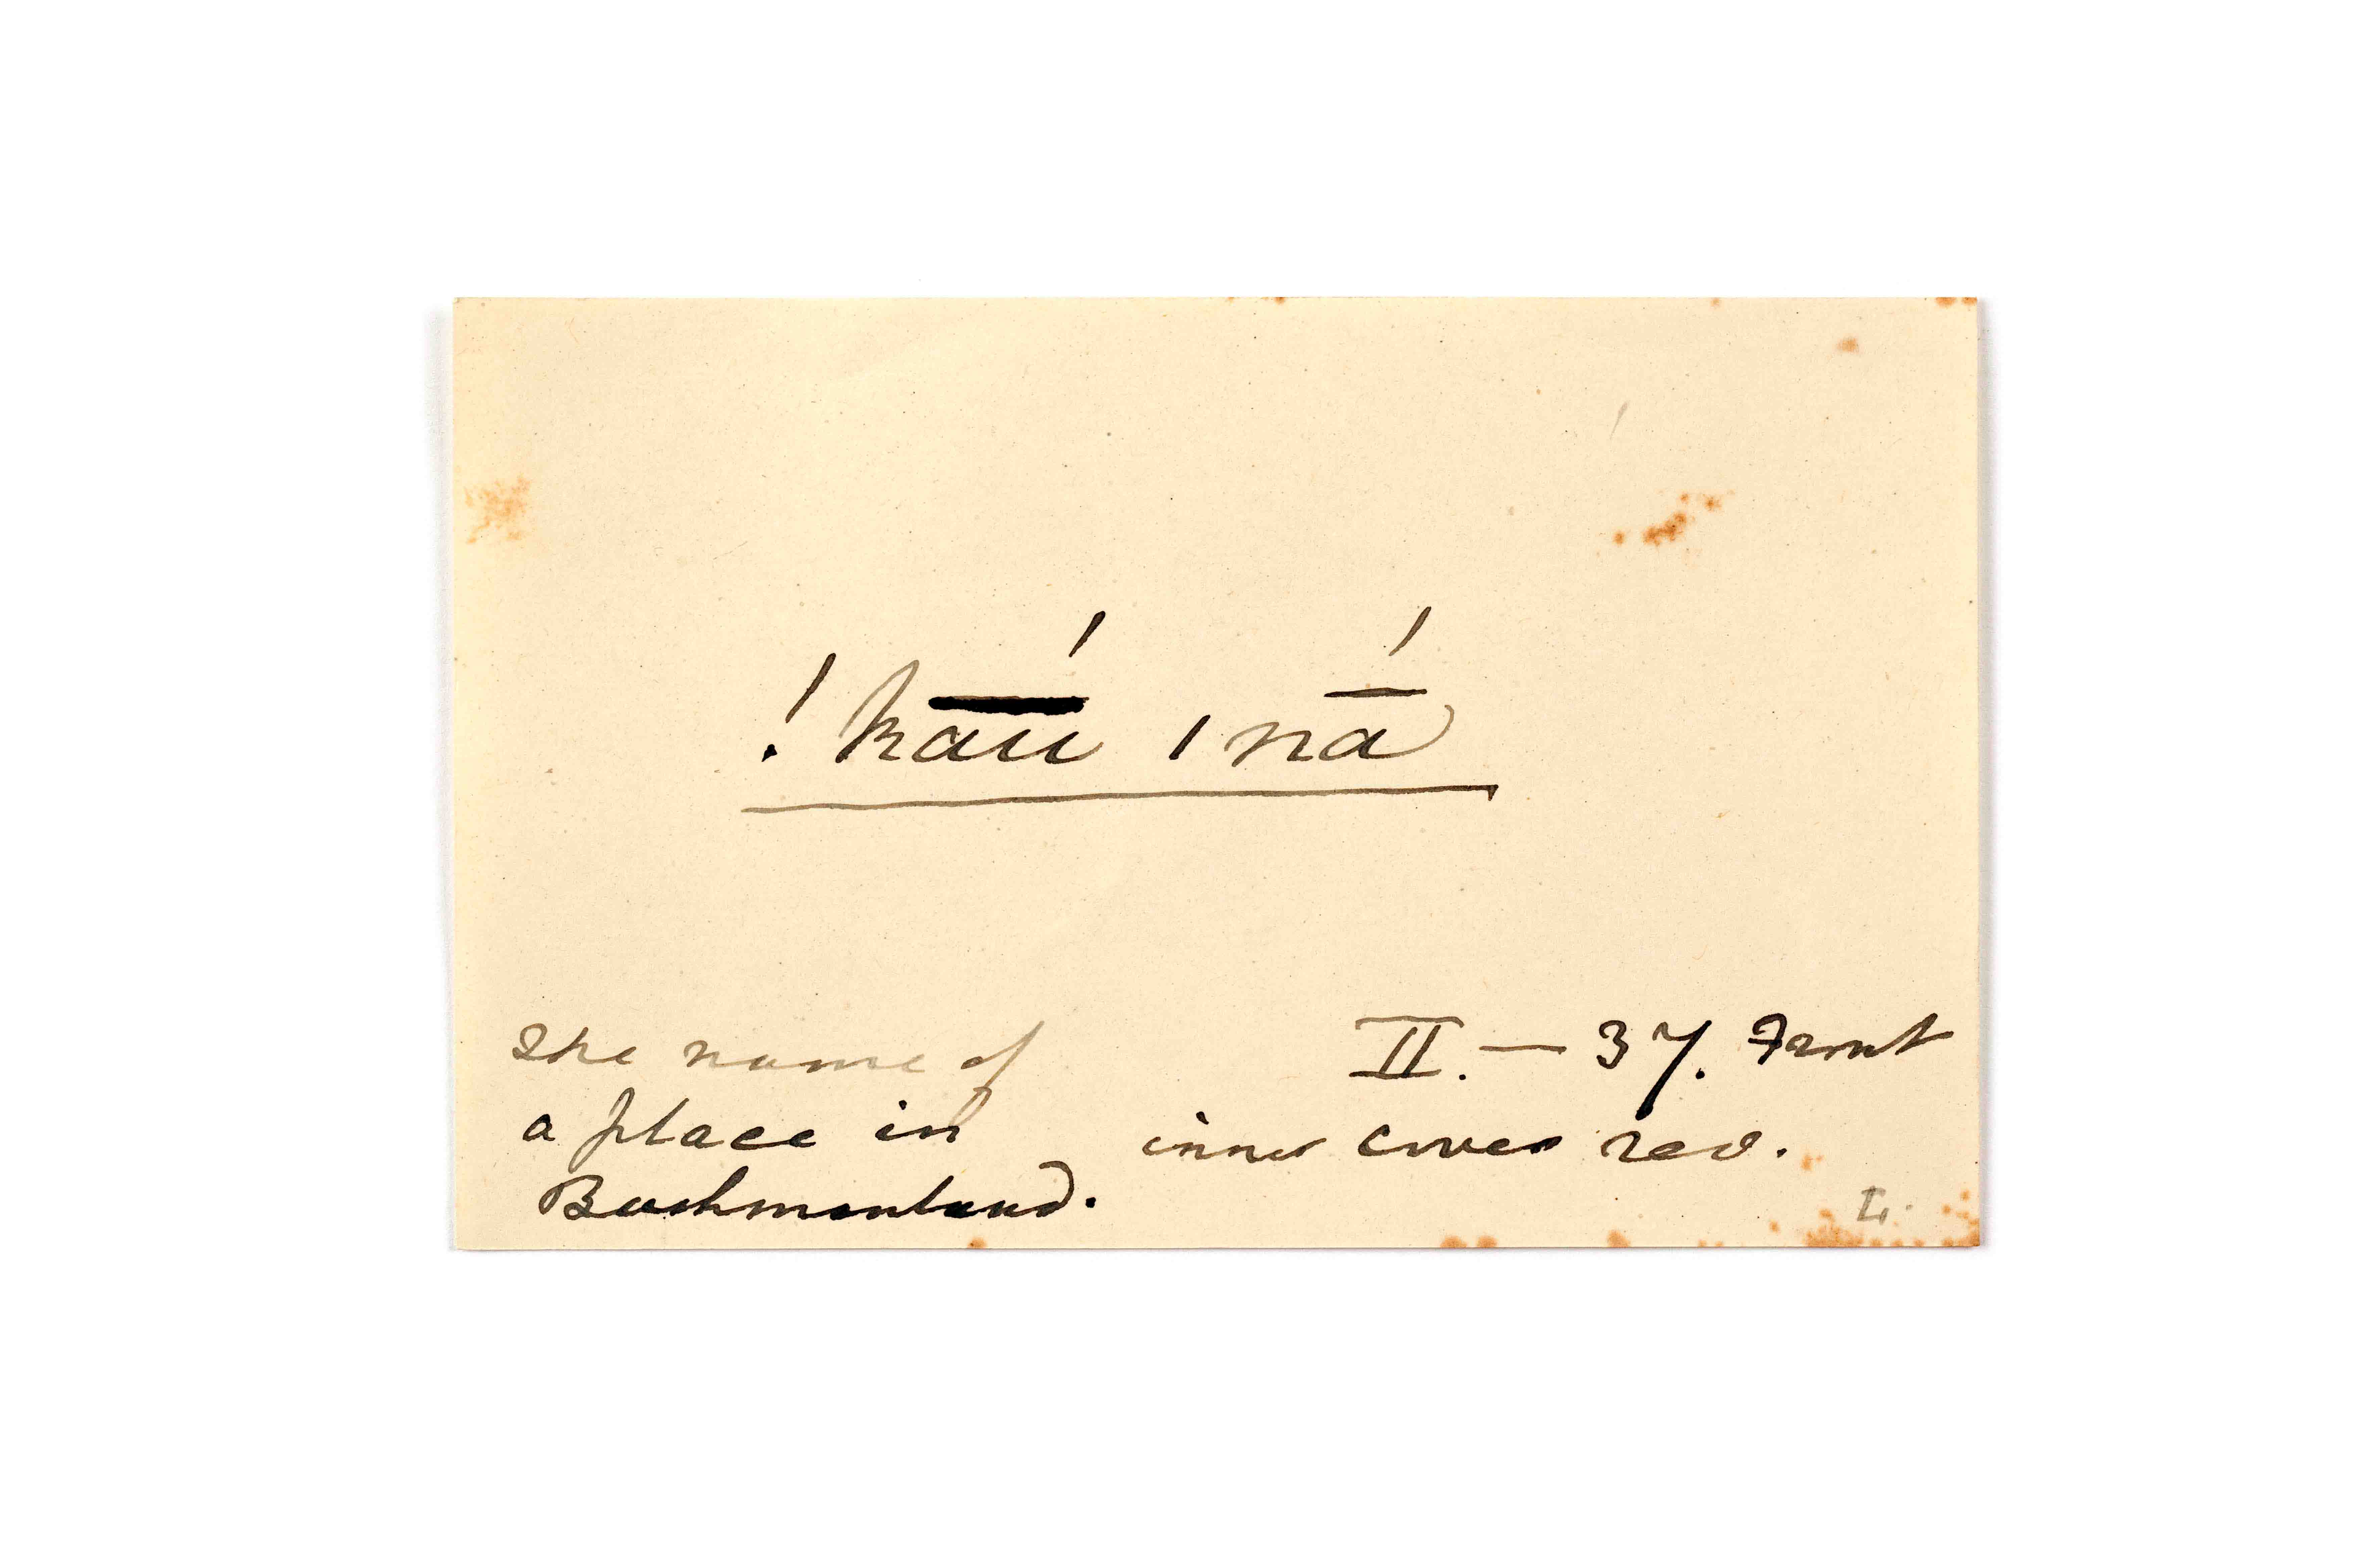 !ka͞ú ǀnā́
The name of
a place in
Bushmanland.
II. — 37. Front
inner cover rev.
L.